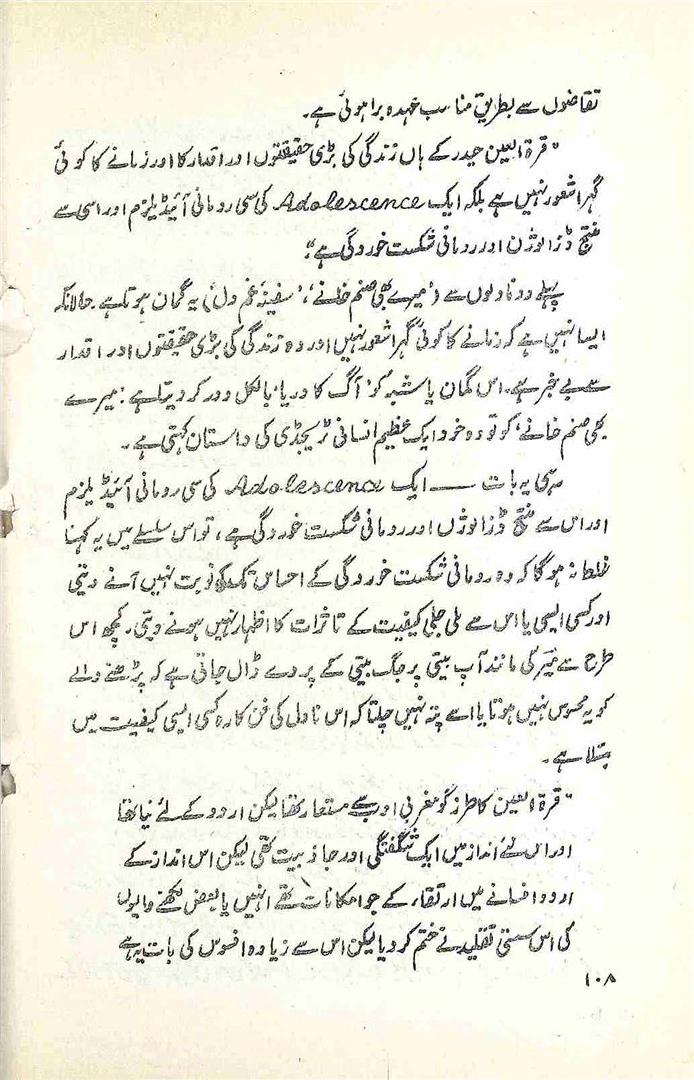 تقاضوں سے بطریق مناسب عہدہ برا ہوئی ہے۔
"قرۃ العین حیدر کے ہاں زندگی کی بڑی حقیقتوں اور اقدار کا اور زمانے کا کوئی
گہرا شعور نہیں ہے بلکہ ایک Adolescence کی سی رومانی آئیڈیلزم اور اسی سے
منتج ڈزالوژن اور رومانی شکست خوردگی ہے"
پہلے دو ناولوں سے ('میرے بھی صنم خانے'، 'سفینۂ غم دل') یہ گمان ہوتا ہے۔ حالانکہ
ایسا نہیں ہے کہ زمانے کا کوئی گہرا شعور نہیں اور وہ زندگی کی بڑی حقیقتوں اور اقدار
سے بے خبر ہے۔ اس گمان یا شبہ کو 'آگ کا دریا' بالکل دور کر دیتا ہے: 'میرے
بھی صنم خانے' کو تو وہ خود ایک عظیم انسانی ٹریجڈی کی داستان کہتی ہے۔
رہی یہ بات ــــ ایک Adolescence کی سی رومانی آئیڈیلزم
اور اس سے منتج ڈزالوژن اور رومانی شکست خوردگی ہے، تو اس سلسلے میں یہ کہنا
غلط نہ ہوگا کہ وہ رومانی شکست خوردگی کے احساس تک کی نوبت نہیں آنے دیتی
اور کسی ایسی یا اس سے ملی جلی کیفیت کے تاثرات کا اظہار نہیں ہونے دیتی۔ کچھ اس
طرح سے میر کی مانند آپ بیتی پر جگ بیتی کے پردے ڈال جاتی ہے کہ پڑھنے والے
کو یہ محسوس نہیں ہوتا یا اسے پتہ نہیں چلتا کہ اس ناول کی فن کارہ کسی ایسی کیفیت میں
مبتلا ہے۔
"قرۃ العین کا طرز گو مغربی ادب سے مستعار تھا لیکن اردو کے لئے نیا تھا
اور اس نئے انداز میں ایک شگفتگی اور جاذبیت تھی لیکن اس انداز کے
اردو افسانے میں ارتقاء کے جو امکانات تھے انہیں یا بعض لکھنے والیوں
کی اس سستی تقلید نے ختم کر دیا لیکن اس سے زیادہ افسوس کی بات یہ ہے
۱۰۸